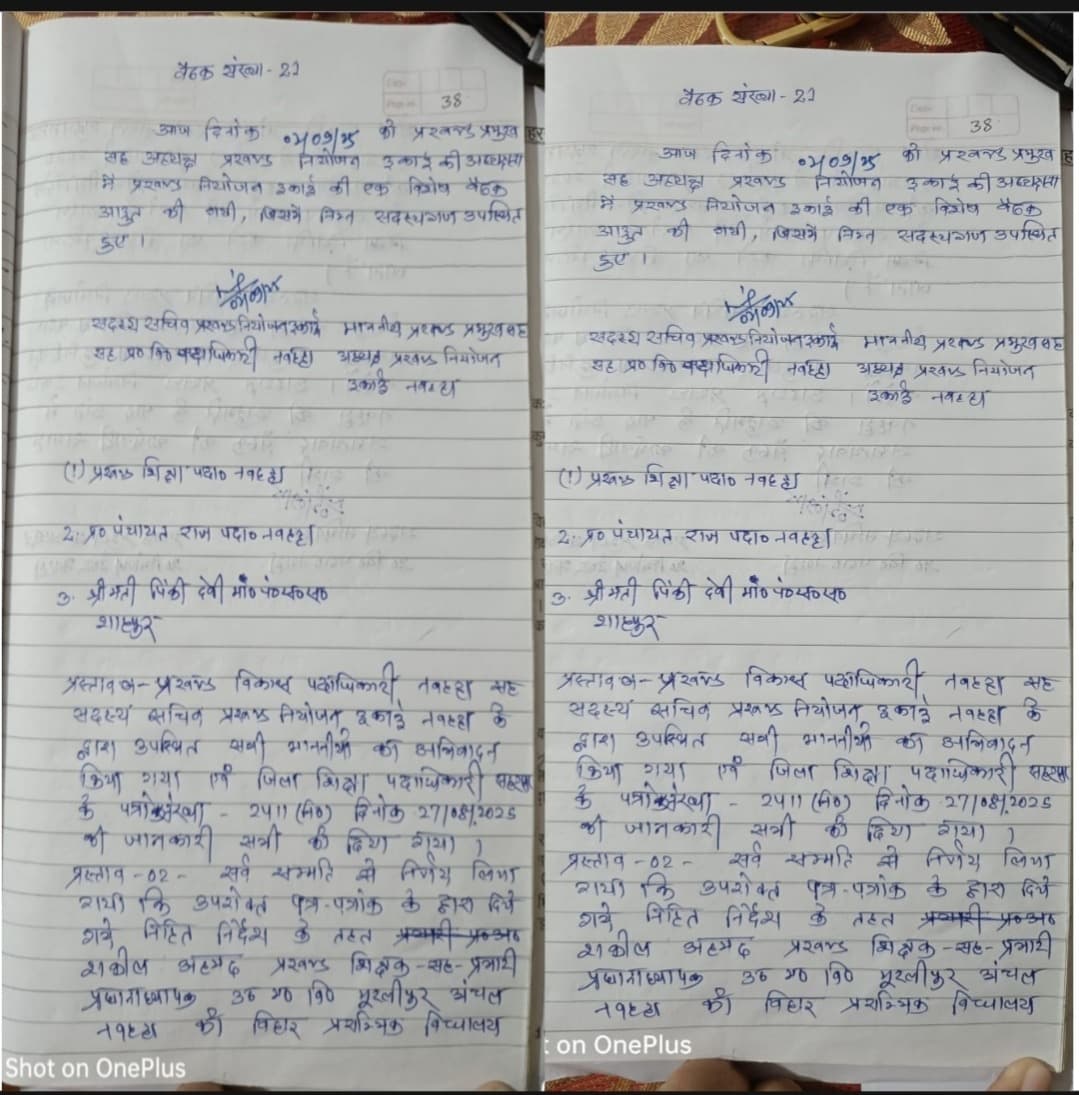 बैठक संख्या - 21
38
आज दिनांक 01/09/25 को प्रखण्ड प्रमुख
सह अध्यक्ष प्रखण्ड नियोजन इकाई की अध्यक्षता
में प्रखण्ड नियोजन इकाई की एक विशेष बैठक
आहुत की गयी, जिसमें निम्न सदस्यगण उपस्थित
हुए।
सदस्य सचिव प्रखण्ड नियोजन इकाई
सह प्र० वि० पदाधिकारी नवहट्टा
माननीय प्रखण्ड प्रमुख सह
अध्यक्ष प्रखण्ड नियोजन
इकाई नवहट्टा
(1) प्रखण्ड शिक्षा पदा० नवहट्टा
2. प्र० पंचायत राज पदा० नवहट्टा
3. श्रीमती पिंकी देवी मा० पं०स०स०
शाहपुर
प्रस्ताव - प्रखण्ड विकास पदाधिकारी नवहट्टा सह
सदस्य सचिव प्रखण्ड नियोजन इकाई नवहट्टा के
द्वारा उपस्थित सभी माननीयों का अभिवादन
किया गया एवं जिला शिक्षा पदाधिकारी सहरसा
के पत्रांक संख्या - 2411 (नि०) दिनांक 27/08/2025
की जानकारी सभी को दिया गया।
प्रस्ताव - 02 - सर्व सम्मति से निर्णय लिया
गया कि उपरोक्त पत्र-पत्रांक के द्वारा दिये
गये निहित निर्देश के तहत प्रभारी प्र०अ०
शकील अहमद प्रखण्ड शिक्षक - सह - प्रभारी
प्रधानाध्यापक उ० म० वि० मुरलीपुर अंचल
नवहट्टा को बिहार प्रारम्भिक विद्यालय
Shot on OnePlus
बैठक संख्या - 21
38
आज दिनांक 01/09/25 को प्रखण्ड प्रमुख
सह अध्यक्ष प्रखण्ड नियोजन इकाई की अध्यक्षता
में प्रखण्ड नियोजन इकाई की एक विशेष बैठक
आहुत की गयी, जिसमें निम्न सदस्यगण उपस्थित
हुए।
सदस्य सचिव प्रखण्ड नियोजन इकाई
सह प्र० वि० पदाधिकारी नवहट्टा
माननीय प्रखण्ड प्रमुख सह
अध्यक्ष प्रखण्ड नियोजन
इकाई नवहट्टा
(1) प्रखण्ड शिक्षा पदा० नवहट्टा
2. प्र० पंचायत राज पदा० नवहट्टा
3. श्रीमती पिंकी देवी मा० पं०स०स०
शाहपुर
प्रस्ताव - प्रखण्ड विकास पदाधिकारी नवहट्टा सह
सदस्य सचिव प्रखण्ड नियोजन इकाई नवहट्टा के
द्वारा उपस्थित सभी माननीयों का अभिवादन
किया गया एवं जिला शिक्षा पदाधिकारी सहरसा
के पत्रांक संख्या - 2411 (नि०) दिनांक 27/08/2025
की जानकारी सभी को दिया गया।
प्रस्ताव - 02 - सर्व सम्मति से निर्णय लिया
गया कि उपरोक्त पत्र-पत्रांक के द्वारा दिये
गये निहित निर्देश के तहत प्रभारी प्र०अ०
शकील अहमद प्रखण्ड शिक्षक - सह - प्रभारी
प्रधानाध्यापक उ० म० वि० मुरलीपुर अंचल
नवहट्टा को बिहार प्रारम्भिक विद्यालय
on OnePlus